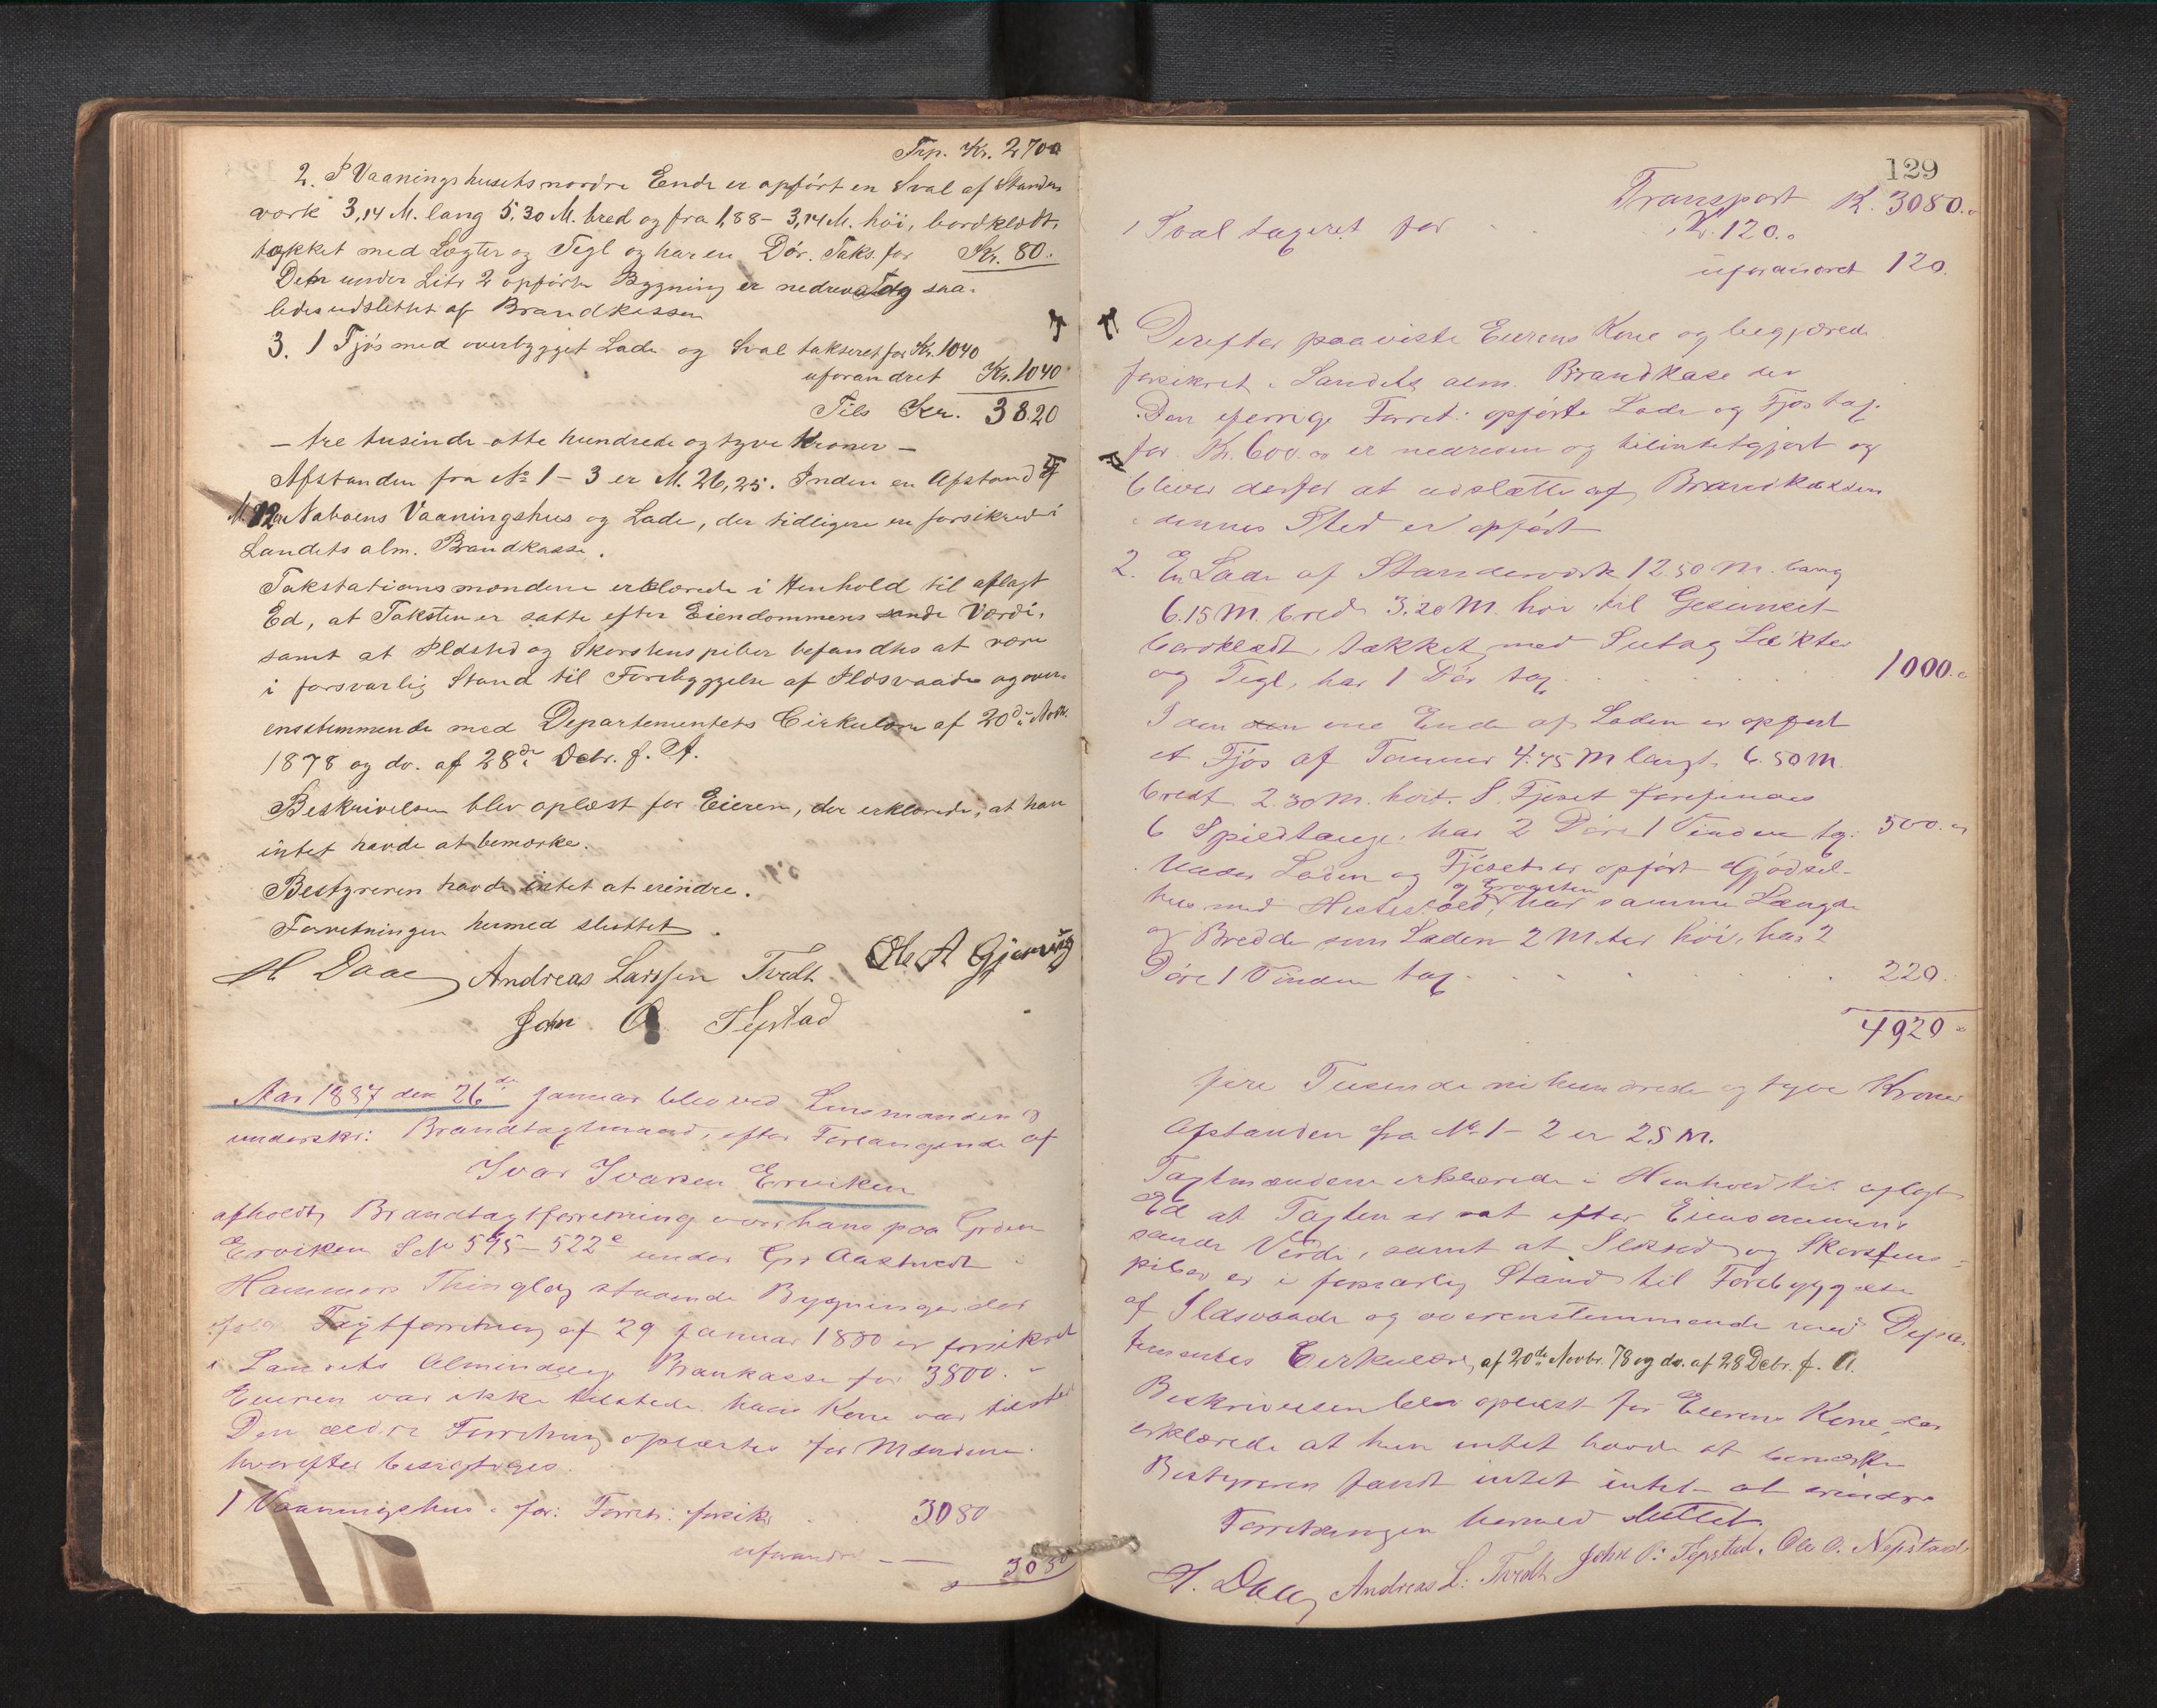 Trp. Kr. 2700
2. I Vaaningshusets nordre Ende er opført en Sval af Stander
værk 3,14 M. lang 5,30 M. bred og fra 1,88 - 3,14 M. høi, bordklædt,
tækket med Lægter og Tegl og har en Dør. Taks. for Kr. 80.
Den under Litr 2 opførte Bygning er nedrevet og saa-
ledes udslettet af Brandkassen
3. 1 Fjøs med overbygget Lade og Sval takseret for Kr. 1040
uforandret Kr. 1040
Tils Kr. 3820
- tre tusinde otte hundrede og tyve Kroner -
Afstanden fra No 1 - 3 er M. 26,25. Inden en Afstand af
M. 12 er Naboens Vaaningshus og Lade, der tidligere er forsikred i
Landets alm. Brandkasse.
Takstationsmændene erklærede i Henhold til aflagt
Ed, at Taksten er satte efter Eiendommens sande Værdi,
samt at Ildsted og Skorstenspiber befandtes at være
i forsvarlig Stand til Forebyggelse af Ildsvaade og over-
ensstemmende med Departementets Cirkulære af 20de Novbr.
1878 og do. af 28de Debr. f. A.
Beskrivelsen blev oplæst for Eieren, der erklærede, at han
intet havde at bemærke.
Bestyreren havde intet at erindre.
Forretningen hermed sluttet.
H Daae Andreas Larssen Tvedt Ole A Gjerving
John O Tepstad
Aar 1887 den 26de Januar blev ved Lensmanden og
underskr: Brandtagtmænd, efter Forlangende af
Ivar Ivarsen Erviken
afholdt Brandtagtforretning over hans paa Grden
Erviken S No 595 - 522e under Gr Aastvedt i
Hammers Thinglag staaende Bygninger der
ifølge Tagtforretning af 29 Januar 1880 er forsikret
i Landets Almindelig Brankasse for 3800.
Eieren var ikke tilstede. hans Kone var tilsted
Den ældre Forretning oplæstes for Mændene
hvorefter besigtiges.
1 Vaaningshus i for: Forretn: forsikr 3080
uforandr — 3080
129
Transport K. 3080.
1 Sval tageret for Kr. 120.
uforandret 120.
Derefter paaviste Eierens Kone og begjærede
forsikret i Landets alm. Brandkase der
Den i forrige Forret: opførte Lade og Fjøs tag.
for Kr. 600. er nedreven og tilintetgjort og
bliver derfor at udslætte af Brandkassen
i dennes Sted er opført
2. En Lade af Standerværk 12.50 M. lang
6.15 M. bred 3.20 M. høi til Gesimset
bordklædt, tækket med Sutag Lækter
og Tegl, har 1 Dør tag. 1000.
I den ene Ende af Laden er opført
et Fjøs af Tømmer 4.45 M langt, 6.50 M.
bredt 2.30 M. høit. I Fjøset forefindes
6 Spildtauge, har 2 Døre 1 Vindue tg. 500.
Under Laden og Fjøset er opført Gjødsel-
hus med Hestestald, og Grovsten har samme Længde
og Bredde som Laden 2 Mter høi, har 2
Døre 1 Vindue tag. 220.
4920
fire Tusende ni hundrede og tyve Kroner
Afstanden fra No 1 - 2 er 25 M.
Tagtmændene erklærede i Henhold til aflagt
Ed at Tagten er sat efter Eiendommens
sande Værdi, samt at Ildsted og Skorstens-
piber er i forsvarlig Stand til Forebyggelse
af Ildsvaade og overenstemmende med Depar
tementes Cirkulære af 20de Novbr. 78 og do. af 28 Debr. f. A.
Beskrivelsen blev oplæst for Eierens Kone, der
erklærede at hun intet havde at bemærke
Bestyreren fandt intet intet at erindre
Forretningen hermed sluttet.
H. Daae Andreas L: Tvedt John O: Tepstad. Ole O. Nepstad